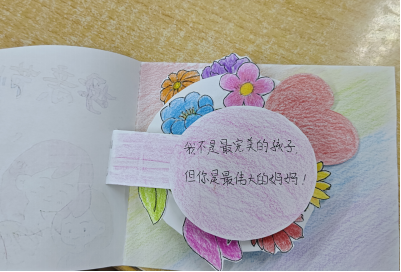 我不是最完美的孩子,
但你是最伟大的妈妈!